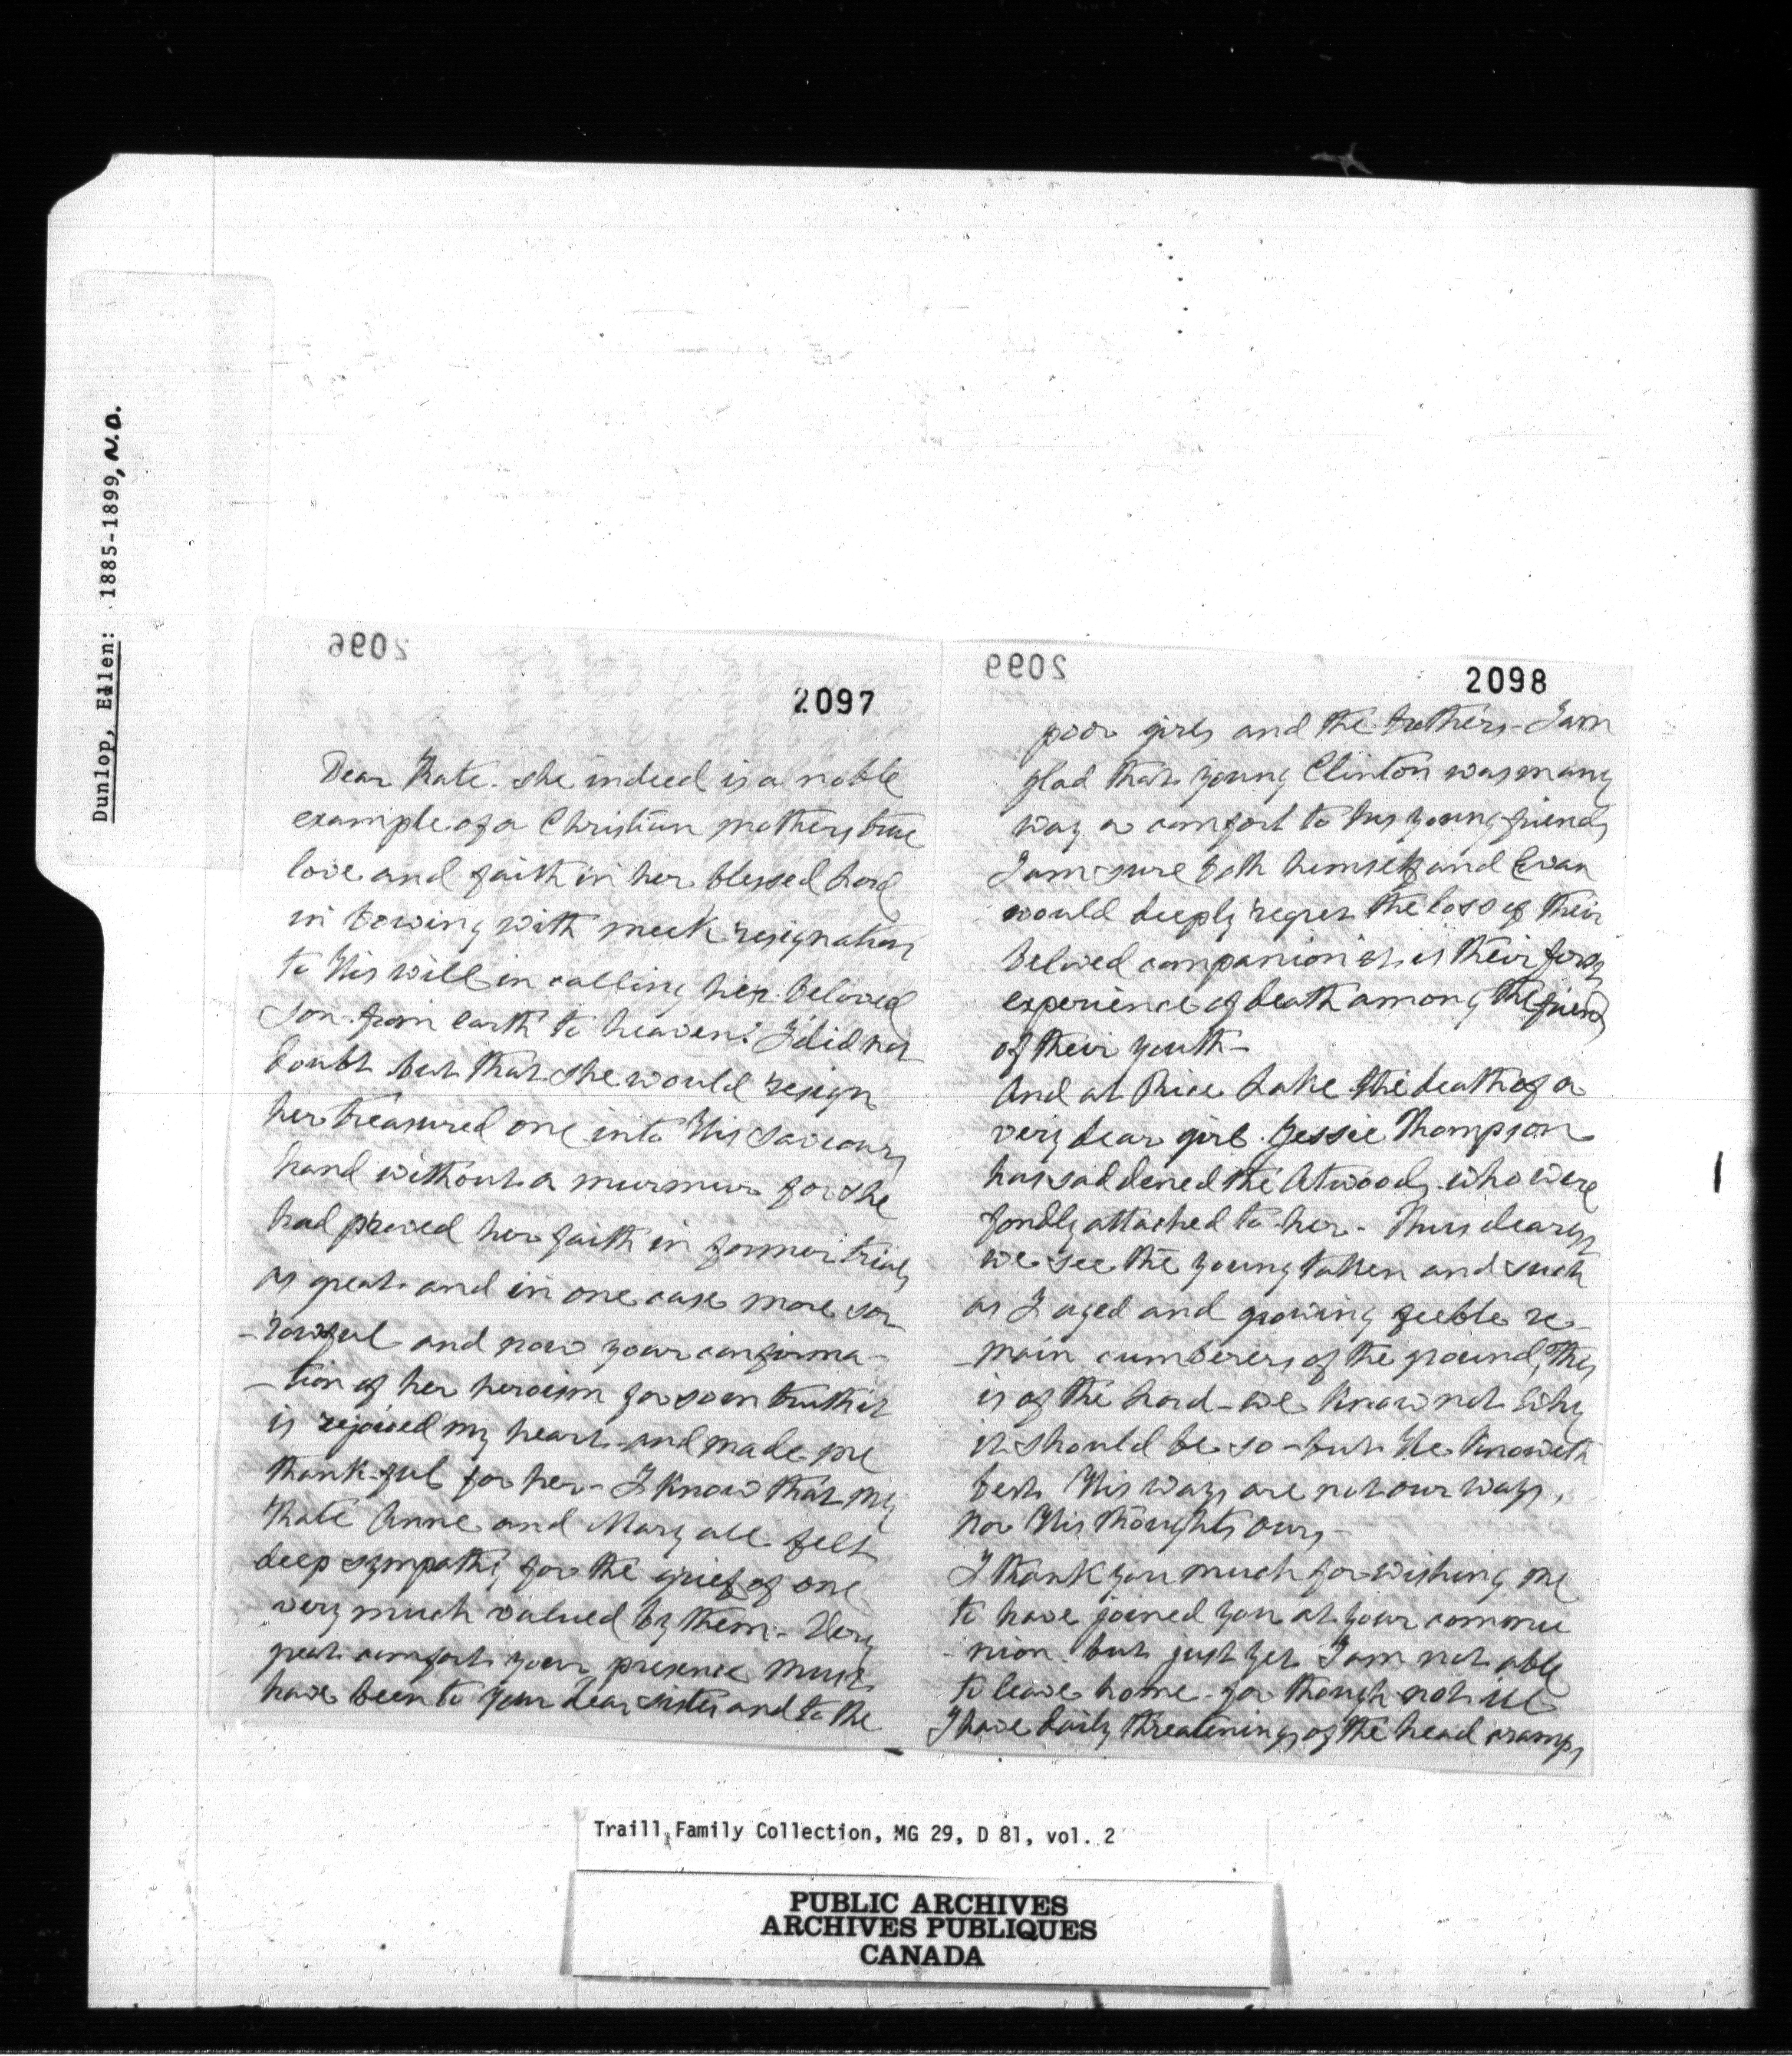 Dunlop, Ellen: 1885-1899, N.D.
2096
2097
Dear Kate. she indeed is a noble
example of a Christian mothers true
love and faith in her blessed Lord
in bowing with meek resignation
to His will in calling her beloved
son from earth to heaven. I did not
doubt but that she would resign
her treasured one into His Saviours
hand without a murmur for she
had proved her faith in former trials
as great and in one case more sor
-rowful and now your confirma-
-tion of her heroism for so in truth it
is rejoiced my heart and made me
thankful for her - I know that my
Kate Anne and Mary all felt
deep sympathy for the grief of one
very much valued by them - Very
great comfort your presence must
have been to your dear sister and to the
2099
2098
poor girls and the brothers - I am
glad that young Clinton was many
way a comfort to his young friends
I am sure both himself and Evan
would deeply regret the loss of their
beloved companion it is their first
experience of death among the friends
of their youth -
And at Rice Lake the death of a
very dear girl Jessie Thompson
has saddened the Atwoods who were
fondly attached to her - Thus dearest
we see the young taken and such
as I aged and growing feeble re-
-main cumberers of the ground, This
is of the Lord - we know not why
it should be so - but He knoweth
best His ways are not our ways,
nor His thoughts ours -
I thank you much for wishing me
to have joined you at your commu
-nion. but just yet I am not able
to leave home - for though not ill
I have daily threatenings of the head cramps
Traill Family Collection, MG 29, D 81, vol. 2
PUBLIC ARCHIVES
ARCHIVES PUBLIQUES
CANADA